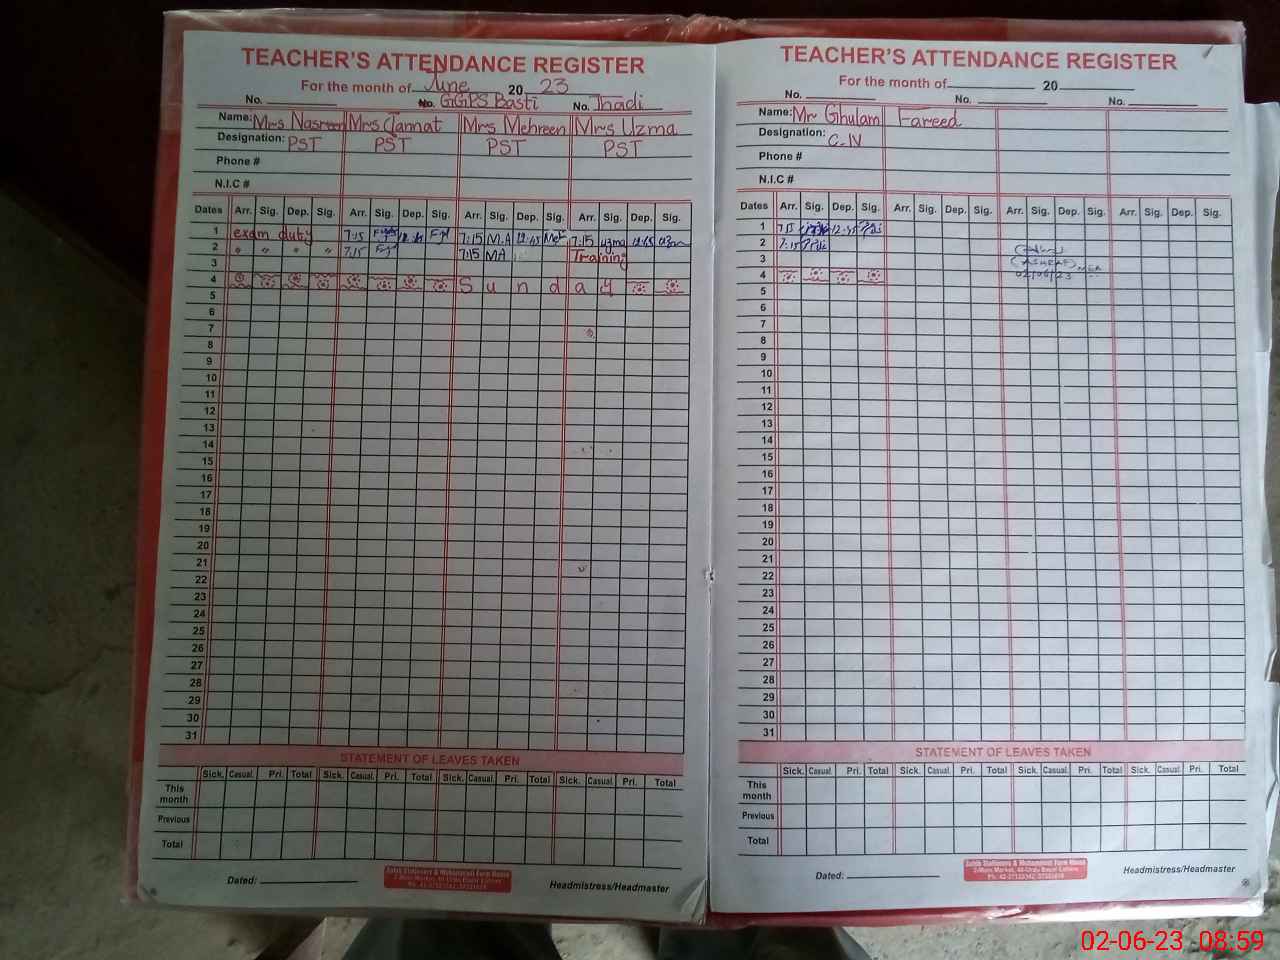 TEACHER'S ATTENDANCE REGISTER
For the month of June 20 23
No. No. GGPS Basti No. Thadi
Name: Mrs Nasreen Mrs Jannat Mrs Mehreen Mrs Uzma
Designation: PST PST PST PST
Phone #
N.I.C #
Dates Arr. Sig. Dep. Sig. Arr. Sig. Dep. Sig. Arr. Sig. Dep. Sig. Arr. Sig. Dep. Sig.
1 exam duty 7:15 12:45 7:15 M.A 12:45 Meh 7:15 uzma 12:45 uzma
2 " " " " 7:15 7:15 MA Training
3
4 S u n d a y
5
6
7
8
9
10
11
12
13
14
15
16
17
18
19
20
21
22
23
24
25
26
27
28
29
30
31
STATEMENT OF LEAVES TAKEN
Sick. Casual. Pri. Total Sick. Casual. Pri. Total Sick. Casual. Pri. Total Sick. Casual. Pri. Total
This month
Previous
Total
Dated: Headmistress/Headmaster
TEACHER'S ATTENDANCE REGISTER
For the month of 20
No. No. No.
Name: Mr Ghulam Fareed
Designation: C-IV
Phone #
N.I.C #
Dates Arr. Sig. Dep. Sig. Arr. Sig. Dep. Sig. Arr. Sig. Dep. Sig. Arr. Sig. Dep. Sig.
1 7:15 12:45
2 7:15
3
4 02/06/23
5
6
7
8
9
10
11
12
13
14
15
16
17
18
19
20
21
22
23
24
25
26
27
28
29
30
31
STATEMENT OF LEAVES TAKEN
Sick. Casual. Pri. Total Sick. Casual. Pri. Total Sick. Casual. Pri. Total Sick. Casual. Pri. Total
This month
Previous
Total
Dated: Headmistress/Headmaster
02-06-23 08:59